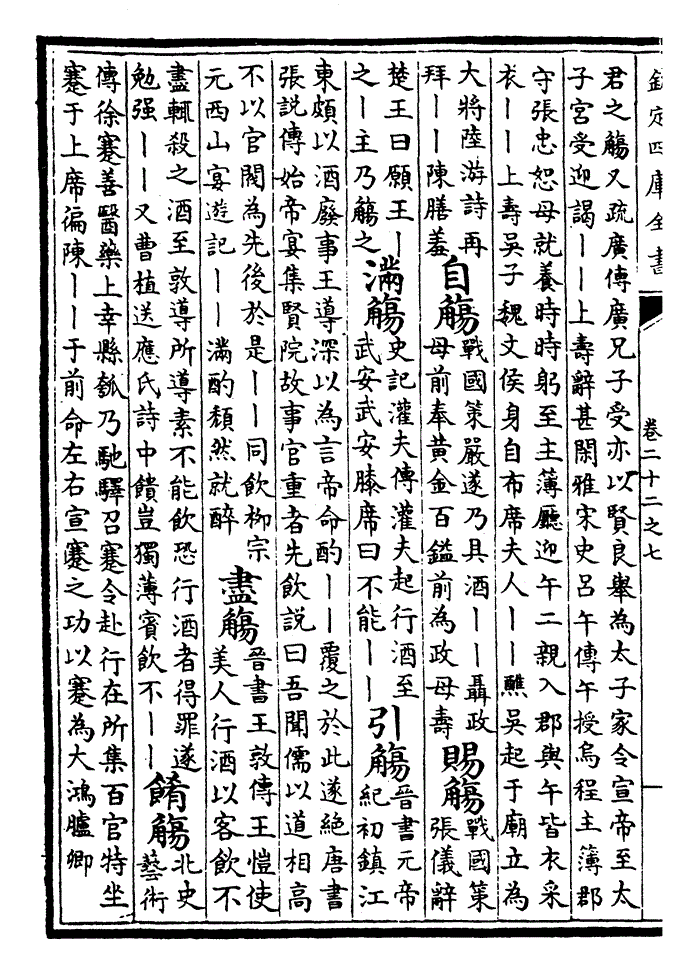 欽定四庫全書
卷二十二之七
君之觴又疏廣傳廣兄子受亦以賢良舉為太子家令宣帝至太
子宮受迎謁丨丨上壽辭甚閑雅宋史呂午傳午授烏程主簿郡
守張忠恕母就養時時躬至主薄廳迎午二親入郡與午皆衣采
衣丨丨上壽吳子魏文侯身自布席夫人丨丨醮吳起于廟立為
大將陸游詩再
拜丨丨陳膳羞
自觴
戰國策嚴遂乃具酒丨丨聶政
母前奉黃金百鎰前為政母壽
賜觴
戰國策
張儀辭
楚王曰願王丨
之丨主乃觴之
滿觴
史記灌夫傳灌夫起行酒至
武安武安膝席曰不能丨丨
引觴
晉書元帝
紀初鎮江
東頗以酒廢事王導深以為言帝命酌丨丨覆之於此遂絕唐書
張說傳始帝宴集賢院故事官重者先飲說曰吾聞儒以道相高
不以官閥為先後於是丨丨同飲柳宗
元西山宴遊記丨丨滿酌頹然就醉
盡觴
晉書王敦傳王愷使
美人行酒以客飲不
盡輒殺之酒至敦導所導素不能飲恐行酒者得罪遂
勉强丨丨又曹植送應氏詩中饋豈獨薄賓飲不丨丨
餚觴
北史
藝術
傳徐蹇善醫藥上幸縣瓠乃馳驛召蹇令赴行在所集百官特坐
蹇于上席徧陳丨丨于前命左右宣蹇之功以蹇為大鴻臚卿